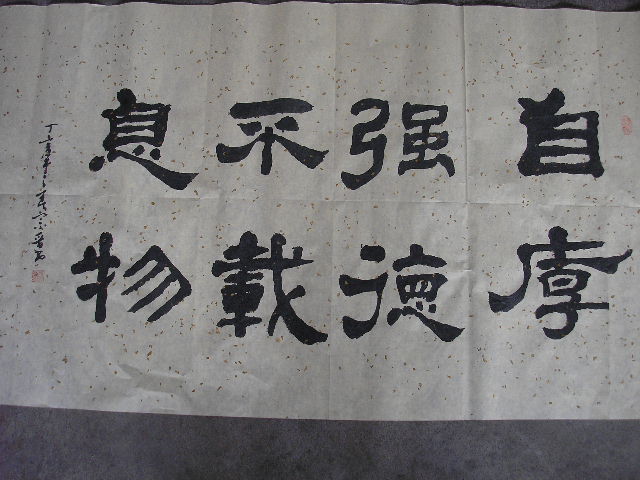 自强不息
厚德載物
丁亥年